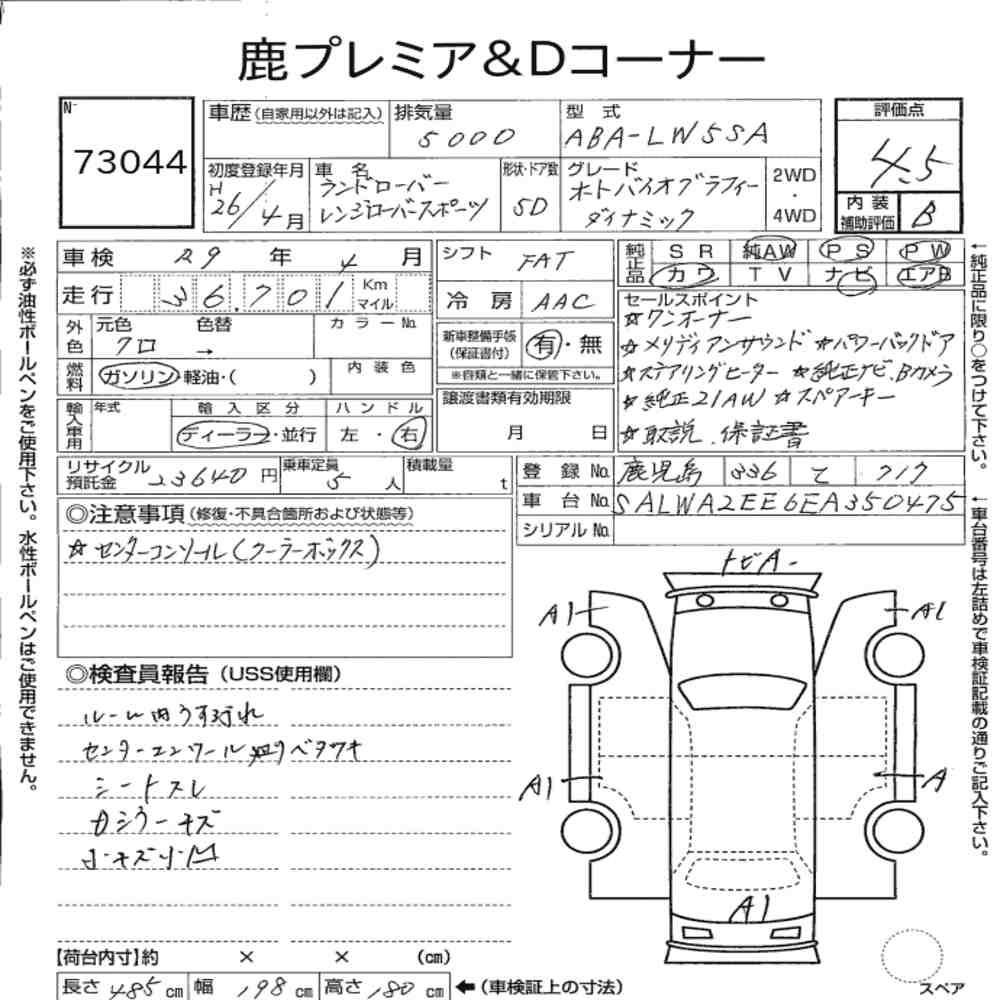 鹿プレミア&Dコーナー
N-
73044
車歴(自家用以外は記入)
排気量
5000
型式
ABA-LW5SA
評価点
4.5
初度登録年月
H
26/4月
車名
ランドローバー
レンジローバースポーツ
形状・ドア数
5D
グレード
オートバイオグラフィー
ダイナミック
2WD
・
4WD
内装
補助評価
B
車検 29年 4月
走行 36.701 Km マイル
シフト FAT
冷房 AAC
純正品
SR 純AW PS PW
カワ TV ナビ エアB
外色
元色 色替 カラーNo.
クロ →
燃料
ガソリン・軽油・( )
内装色
新車整備手帳
(保証書付)
有・無
※自類と一緒に保管下さい。
輸入車用
年式
輸入区分
ディーラー・並行
ハンドル
左・右
譲渡書類有効期限
月 日
セールスポイント
☆ワンオーナー
☆メリディアンサウンド ☆パワーバックドア
☆ステアリングヒーター ☆純正ナビ、Bカメラ
☆純正21AW ☆スペアーキー
☆取説、保証書
リサイクル
預託金 23640円
乗車定員 5人
積載量 t
登録No. 鹿児島 336 て 717
車台No. SALWA2EE6EA350475
シリアルNo.
◎注意事項(修復・不具合箇所および状態等)
☆センターコンソール(クーラーボックス)
◎検査員報告(USS使用欄)
ルーム内うす汚れ
シートスレ
トビA-
A1
A1
A1
A
A1
【荷台内寸】約 × × (cm)
長さ 485cm 幅 198cm 高さ 180cm ←(車検証上の寸法)
スペア
※必ず油性ボールペンをご使用下さい。水性ボールペンはご使用できません。
←純正品に限り○をつけて下さい。
←車台番号は左詰めで車検証記載の通りご記入下さい。